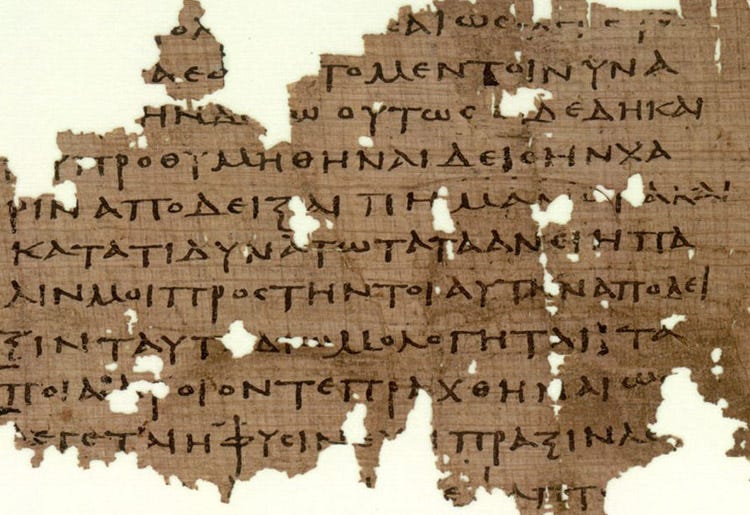 ΑΙΩΣ
ΤΟΜΕΝΤΟΙΝΥΝΑ
ΗΝΔ Ω ΟΥΤΩΣ ΔΕΔΗΚΑΙ
ΥΠΡΟΘΥΜΗΘΗΝΑΙΔΕΙΣΗΝΧΑ
ΡΙΝΑΠΟΔΕΙΞΑΙΠΗΜΑ ΚΑΙ
ΚΑΤΑΤΙΔΥΝΑΤΩΤΑΤΑΑΝΕΙΗΠΑ
ΛΙΝΜΟΙΠΡΟΣΤΗΝΤΟΙΑΥΤΗΝΑΠΟΔΕΙ
ΞΙΝΤΑΥΤ ΔΙΟΜΟΛΟΓΗΤΑΙ:ΤΑ
ΠΟΙΑ:ΑΡ ΟΙΟΝΤΕΠΡΑΧΘΗΝΑΙΩΣ
ΛΕΓΕΤΑΙΗΦΥΣΙΝ ΠΡΑΞΙΝΛΕ